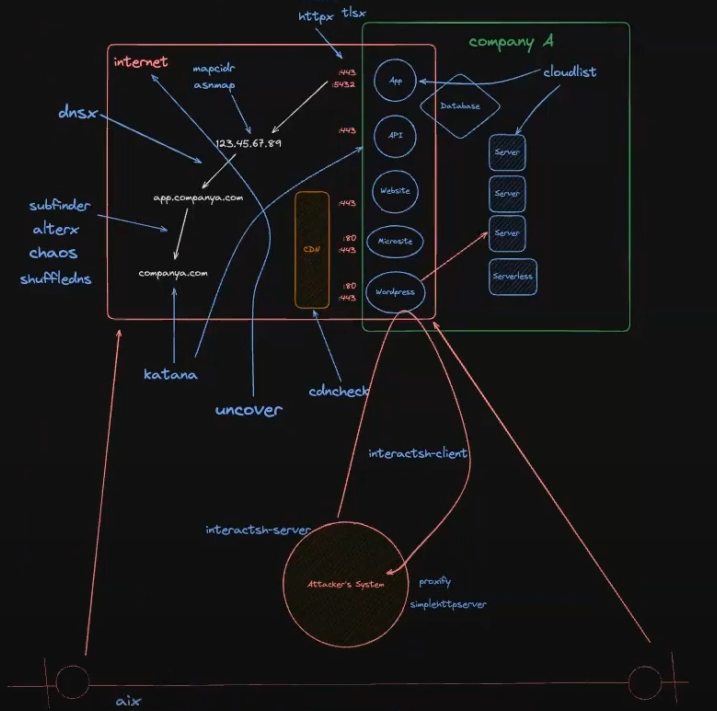 httpx tlsx
company A
internet
mapcidr
asnmap
:443
:5432
App
cloudlist
Database
dnsx
:443
API
123.45.67.89
Server
app.companya.com
Website
Server
:443
subfinder
alterx
chaos
shuffledns
CDN
:80
:443
Microsite
Server
companya.com
Serverless
:80
:443
Wordpress
katana
uncover
cdncheck
interactsh-client
interactsh-server
Attacker's System
proxify
simplehttpserver
aix